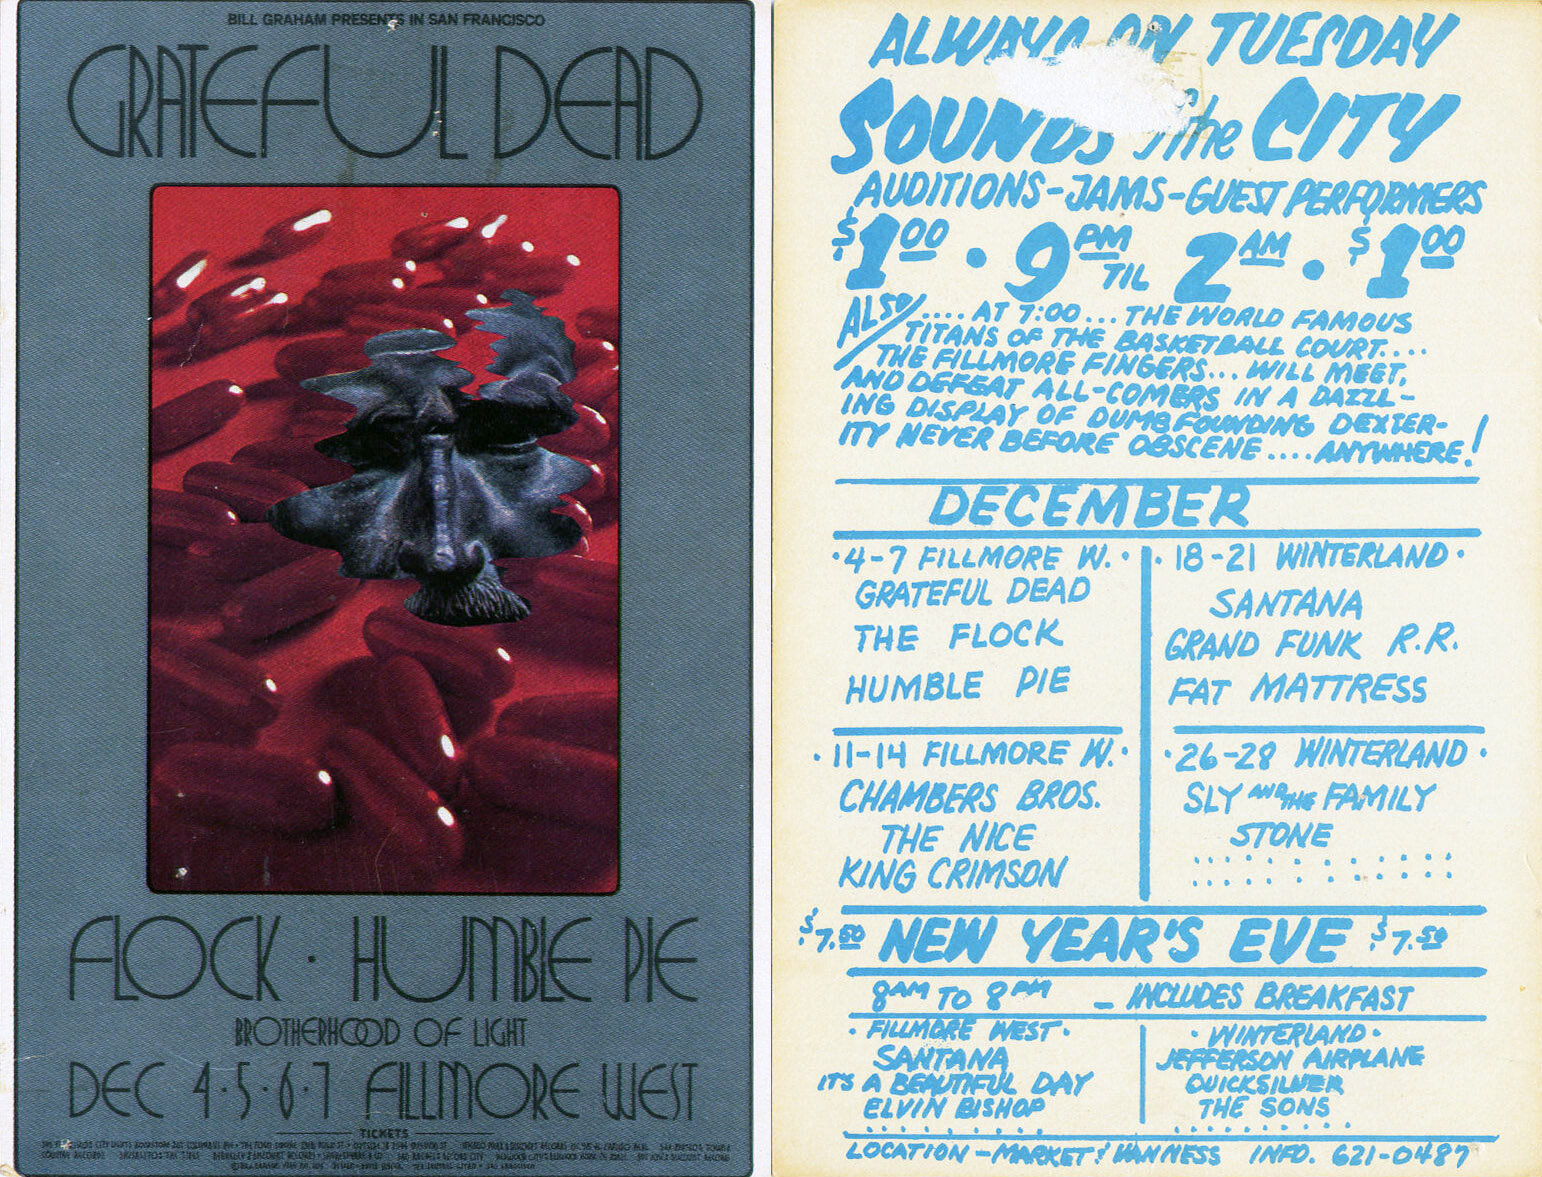 BILL GRAHAM PRESENTS IN SAN FRANCISCO
GRATEFUL DEAD
FLOCK · HUMBLE PIE
BROTHERHOOD OF LIGHT
DEC 4·5·6·7 FILLMORE WEST
TICKETS
ALWAYS ON TUESDAY
SOUNDS of the CITY
AUDITIONS-JAMS-GUEST PERFORMERS
$1.00 · 9 PM TIL 2 AM · $1.00
ALSO/.... AT 7:00... THE WORLD FAMOUS
TITANS OF THE BASKETBALL COURT....
THE FILLMORE FINGERS... WILL MEET,
AND DEFEAT ALL-COMERS IN A DAZZL-
ING DISPLAY OF DUMBFOUNDING DEXTER-
ITY NEVER BEFORE OBSCENE....ANYWHERE!
DECEMBER
·4-7 FILLMORE W.·
GRATEFUL DEAD
THE FLOCK
HUMBLE PIE
·11-14 FILLMORE W.·
CHAMBERS BROS.
THE NICE
KING CRIMSON
·18-21 WINTERLAND·
SANTANA
GRAND FUNK R.R.
FAT MATTRESS
·26-28 WINTERLAND·
SLY AND THE FAMILY
STONE
$7.50 NEW YEAR'S EVE $7.50
8AM TO 8PM - INCLUDES BREAKFAST
·FILLMORE WEST·
SANTANA
IT'S A BEAUTIFUL DAY
ELVIN BISHOP
·WINTERLAND·
JEFFERSON AIRPLANE
QUICKSILVER
THE SONS
LOCATION-MARKET! VANNESS INFO. 621-0487